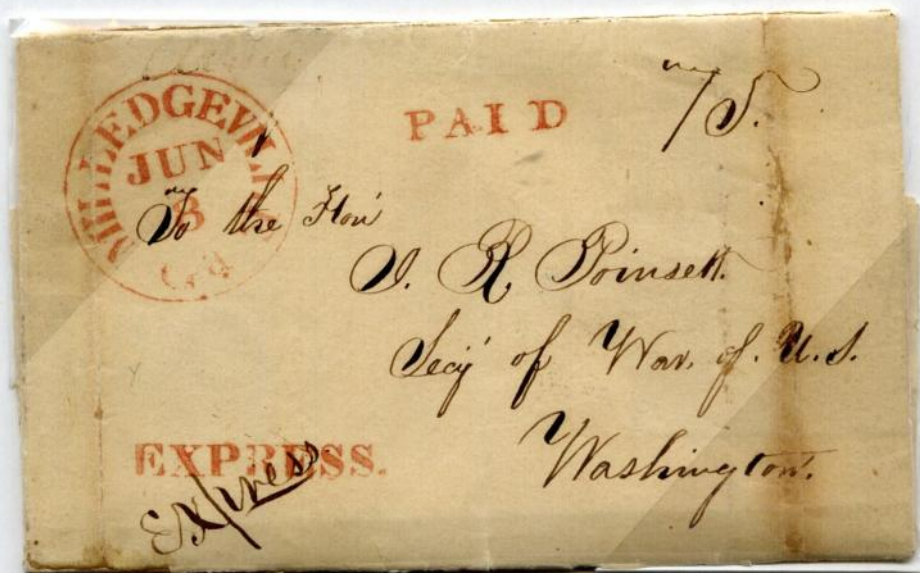 MILLEDGEVILLE
JUN
8
Ga
PAID
75.
To the Hon'
J. R. Poinsett.
Secy' of War. of. U.S.
Washington.
EXPRESS.
Express